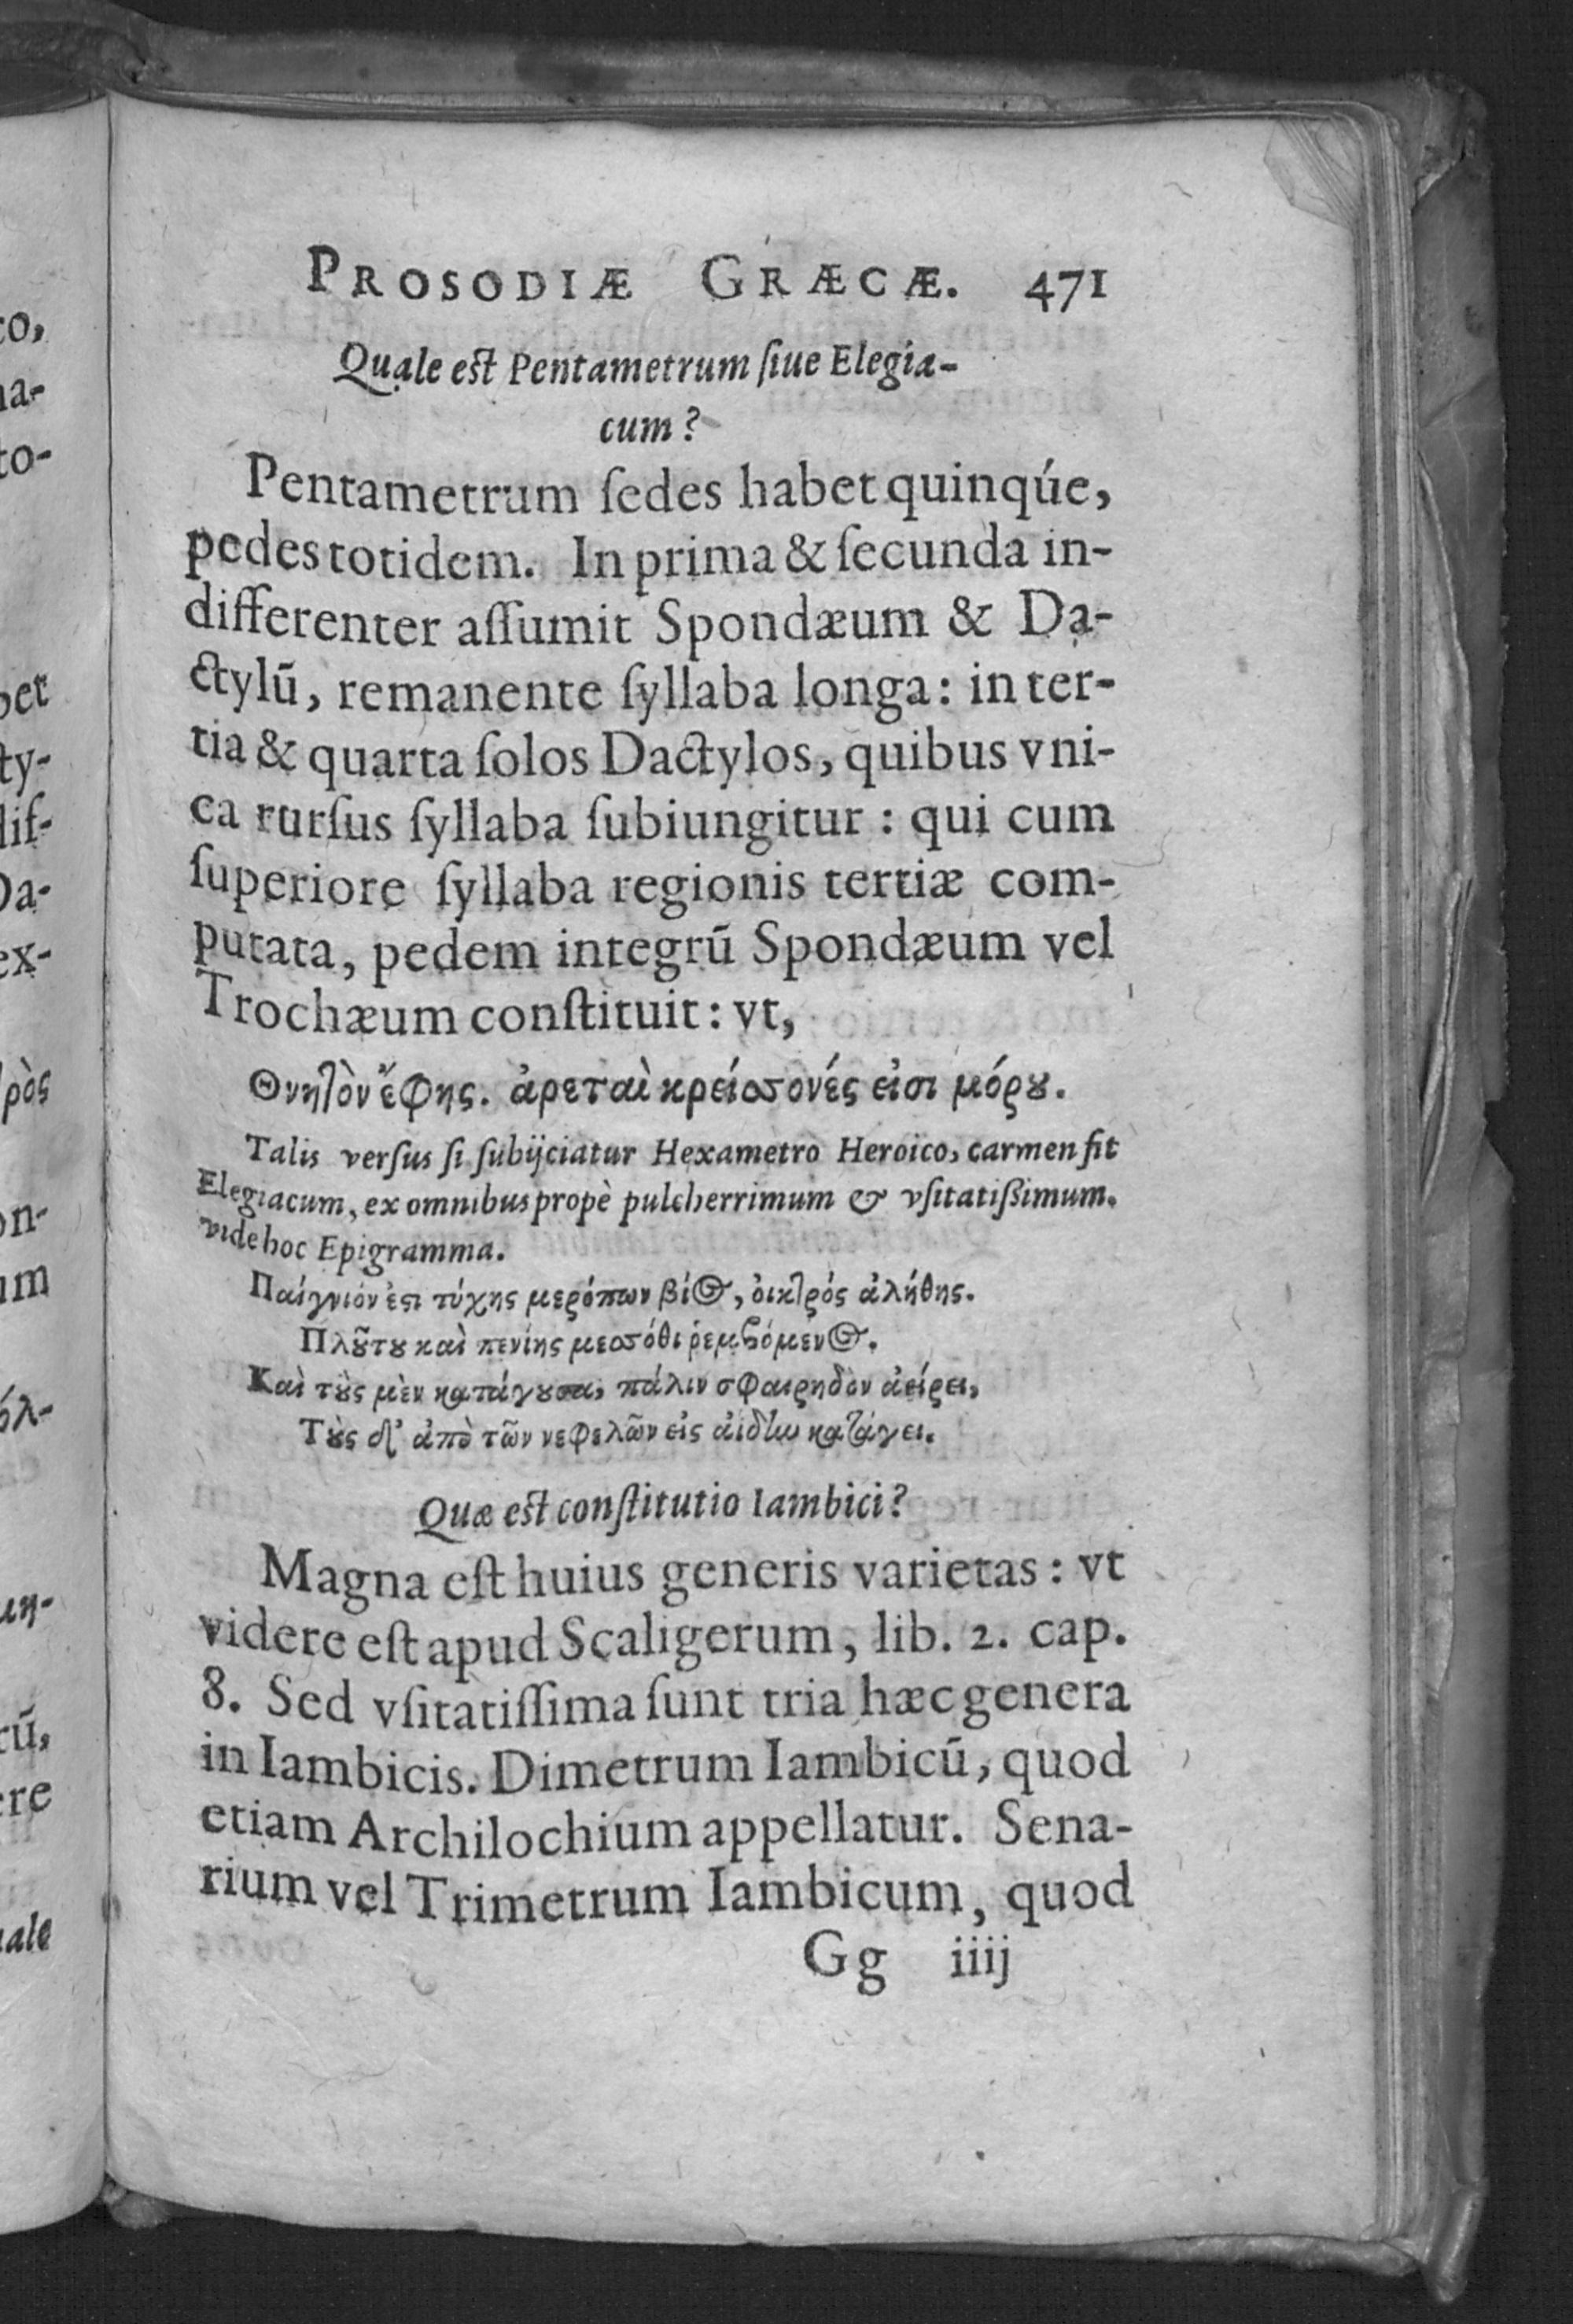 PROSODIÆ GRÆCÆ. 471
Quale est Pentametrum ſiue Elegia-
cum?
Pentametrum ſedes habet quinqúe,
pedes totidem. In prima & ſecunda in-
differenter aſſumit Spondæum & Da-
ctylū, remanente ſyllaba longa: in ter-
tia & quarta ſolos Dactylos, quibus vni-
ca rurſus ſyllaba ſubiungitur: qui cum
ſuperiore ſyllaba regionis tertiæ com-
putata, pedem integrū Spondæum vel
Trochæum conſtituit: vt,
Θνητὸν ἔφης. ἀρεταὶ κρείστονές εἰσι μόρȣ.
Talis verſus ſi ſubijciatur Hexametro Heroico, carmen fit
Elegiacum, ex omnibus propè pulcherrimum & vſitatißimum.
vide hoc Epigramma.
Παίγνιόν ἐϛι τύχης μερόπων βίος, οἰκτρός ἀλήθης.
Πλȣ͂τȣ καὶ πενίης μεσσόθι ῥεμβόμενος.
Καὶ τȣ̀ς μὲν κατάγȣσα, πάλιν σφαιρηδὸν ἀείρει,
Τȣ̀ς δ' ἀπὸ τῶν νεφελῶν εἰς ἀίδην κατάγει.
Quæ est conſtitutio Iambici?
Magna eſt huius generis varietas: vt
videre eſt apud Scaligerum, lib. 2. cap.
8. Sed vſitatiſſima ſunt tria hæc genera
in Iambicis. Dimetrum Iambicū, quod
etiam Archilochium appellatur. Sena-
rium vel Trimetrum Iambicum, quod
Gg iiij